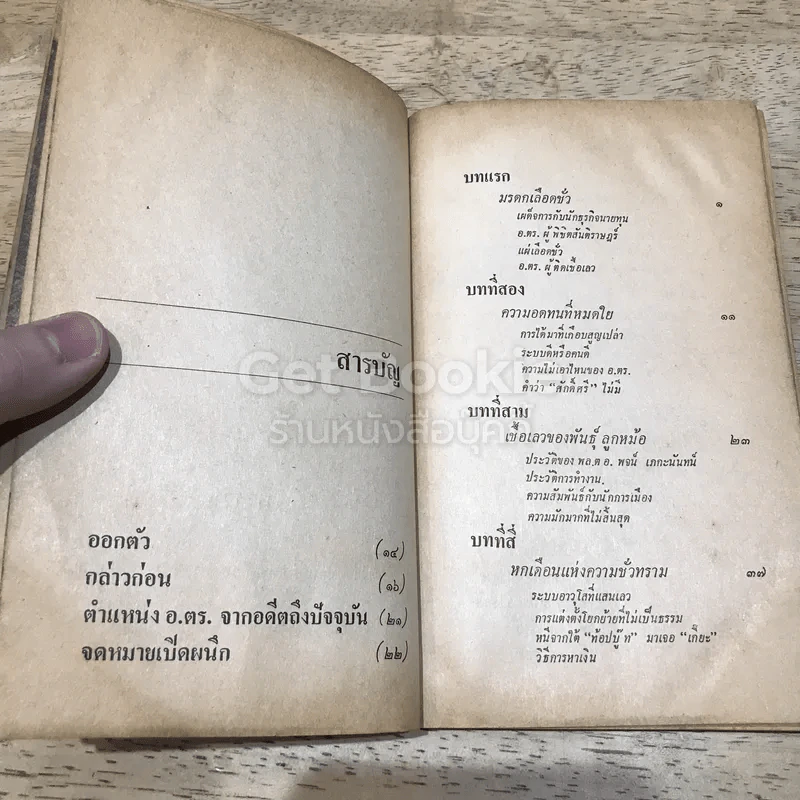 สารบัญ
ออกตัว (๑๔)
กล่าวก่อน (๑๖)
ตำแหน่ง อ.ตร. จากอดีตถึงปัจจุบัน (๒๑)
จดหมายเปิดผนึก (๒๒)
บทแรก
มรดกเลือดชั่ว ๑
เผด็จการกับนักธุรกิจนายทุน
อ.ตร. ผู้พิชิตสันติราษฎร์
แผ่เลือดชั่ว
อ.ตร. ผู้ติดเชื้อเลว
บทที่สอง
ความอดทนที่หมดใย ๑๑
การได้มาที่เกือบสูญเปล่า
ระบบดีหรือคนดี
ความไม่เอาไหนของ อ.ตร.
คำว่า "ศักดิ์ศรี" ไม่มี
บทที่สาม
เชื้อเลวของพันธุ์ ลูกหม้อ ๒๓
ประวัติของ พล.ต อ. พจน์ เภกะนันทน์
ประวัติการทำงาน.
ความสัมพันธ์กับนักการเมือง
ความมักมากที่ไม่สิ้นสุด
บทที่สี่
หกเดือนแห่งความชั่วทราม ๓๗
ระบบอาวุโสที่แสนเลว
การแต่งตั้งโยกย้ายที่ไม่เป็นธรรม
หนีจากใต้ "ท้อปบู๊ท" มาเจอ "เกี๊ยะ"
วิธีการหาเงิน
Get Booki
ร้านหนังสือบุ๊คกี้